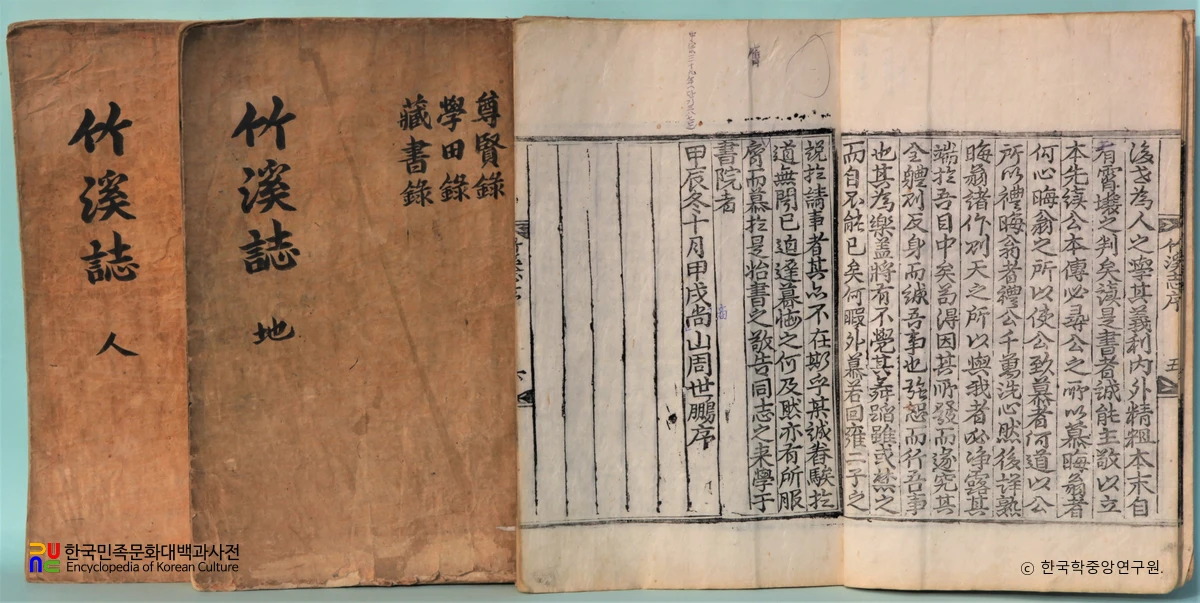 竹溪誌
人
竹溪誌
地
尊賢錄
學田錄
藏書錄
為人之學其義利內外精粗本末自
有霄壤之判矣讀是書者誠能主敬以立
本先讀公本傳必尋公之所以慕晦翁者
何心晦翁之所以使公致慕者何道以公
所以禮晦翁者禮公千萬洗心然後詳熟
晦翁諸作則天之所以與我者必淨露其
端於吾目中矣苟得因其所發而遂究其
全體則反身而誠吾事也強恕而行吾事
也其為樂蓋將有不覺其舞蹈雖或禁之
而自不能已矣何暇外慕若回雍二子之
竹溪志序
五
說於請事者其亦不在斯乎某誠騃於
道無聞已迫遲暮悔之何及然亦有所服
膺而慕於是書之敬告同志之來學于
書院者
甲辰冬十月甲戌尚山周世鵬序
한국민족문화대백과사전
Encyclopedia of Korean Culture
ⓒ 한국학중앙연구원.